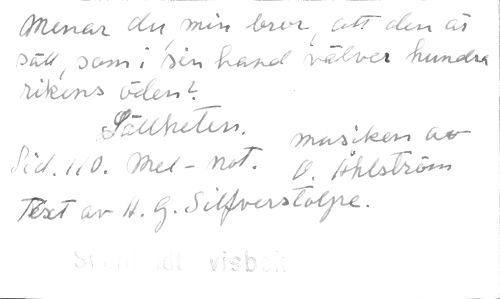 Menar du, min bror, att den är
säll, som i sin hand välver hundra
rikens öden?
Sällheten.
musiken av
Sid. 110. Mel-not. O. Åhlström
Text av H. G. Silfverstolpe.
visbok